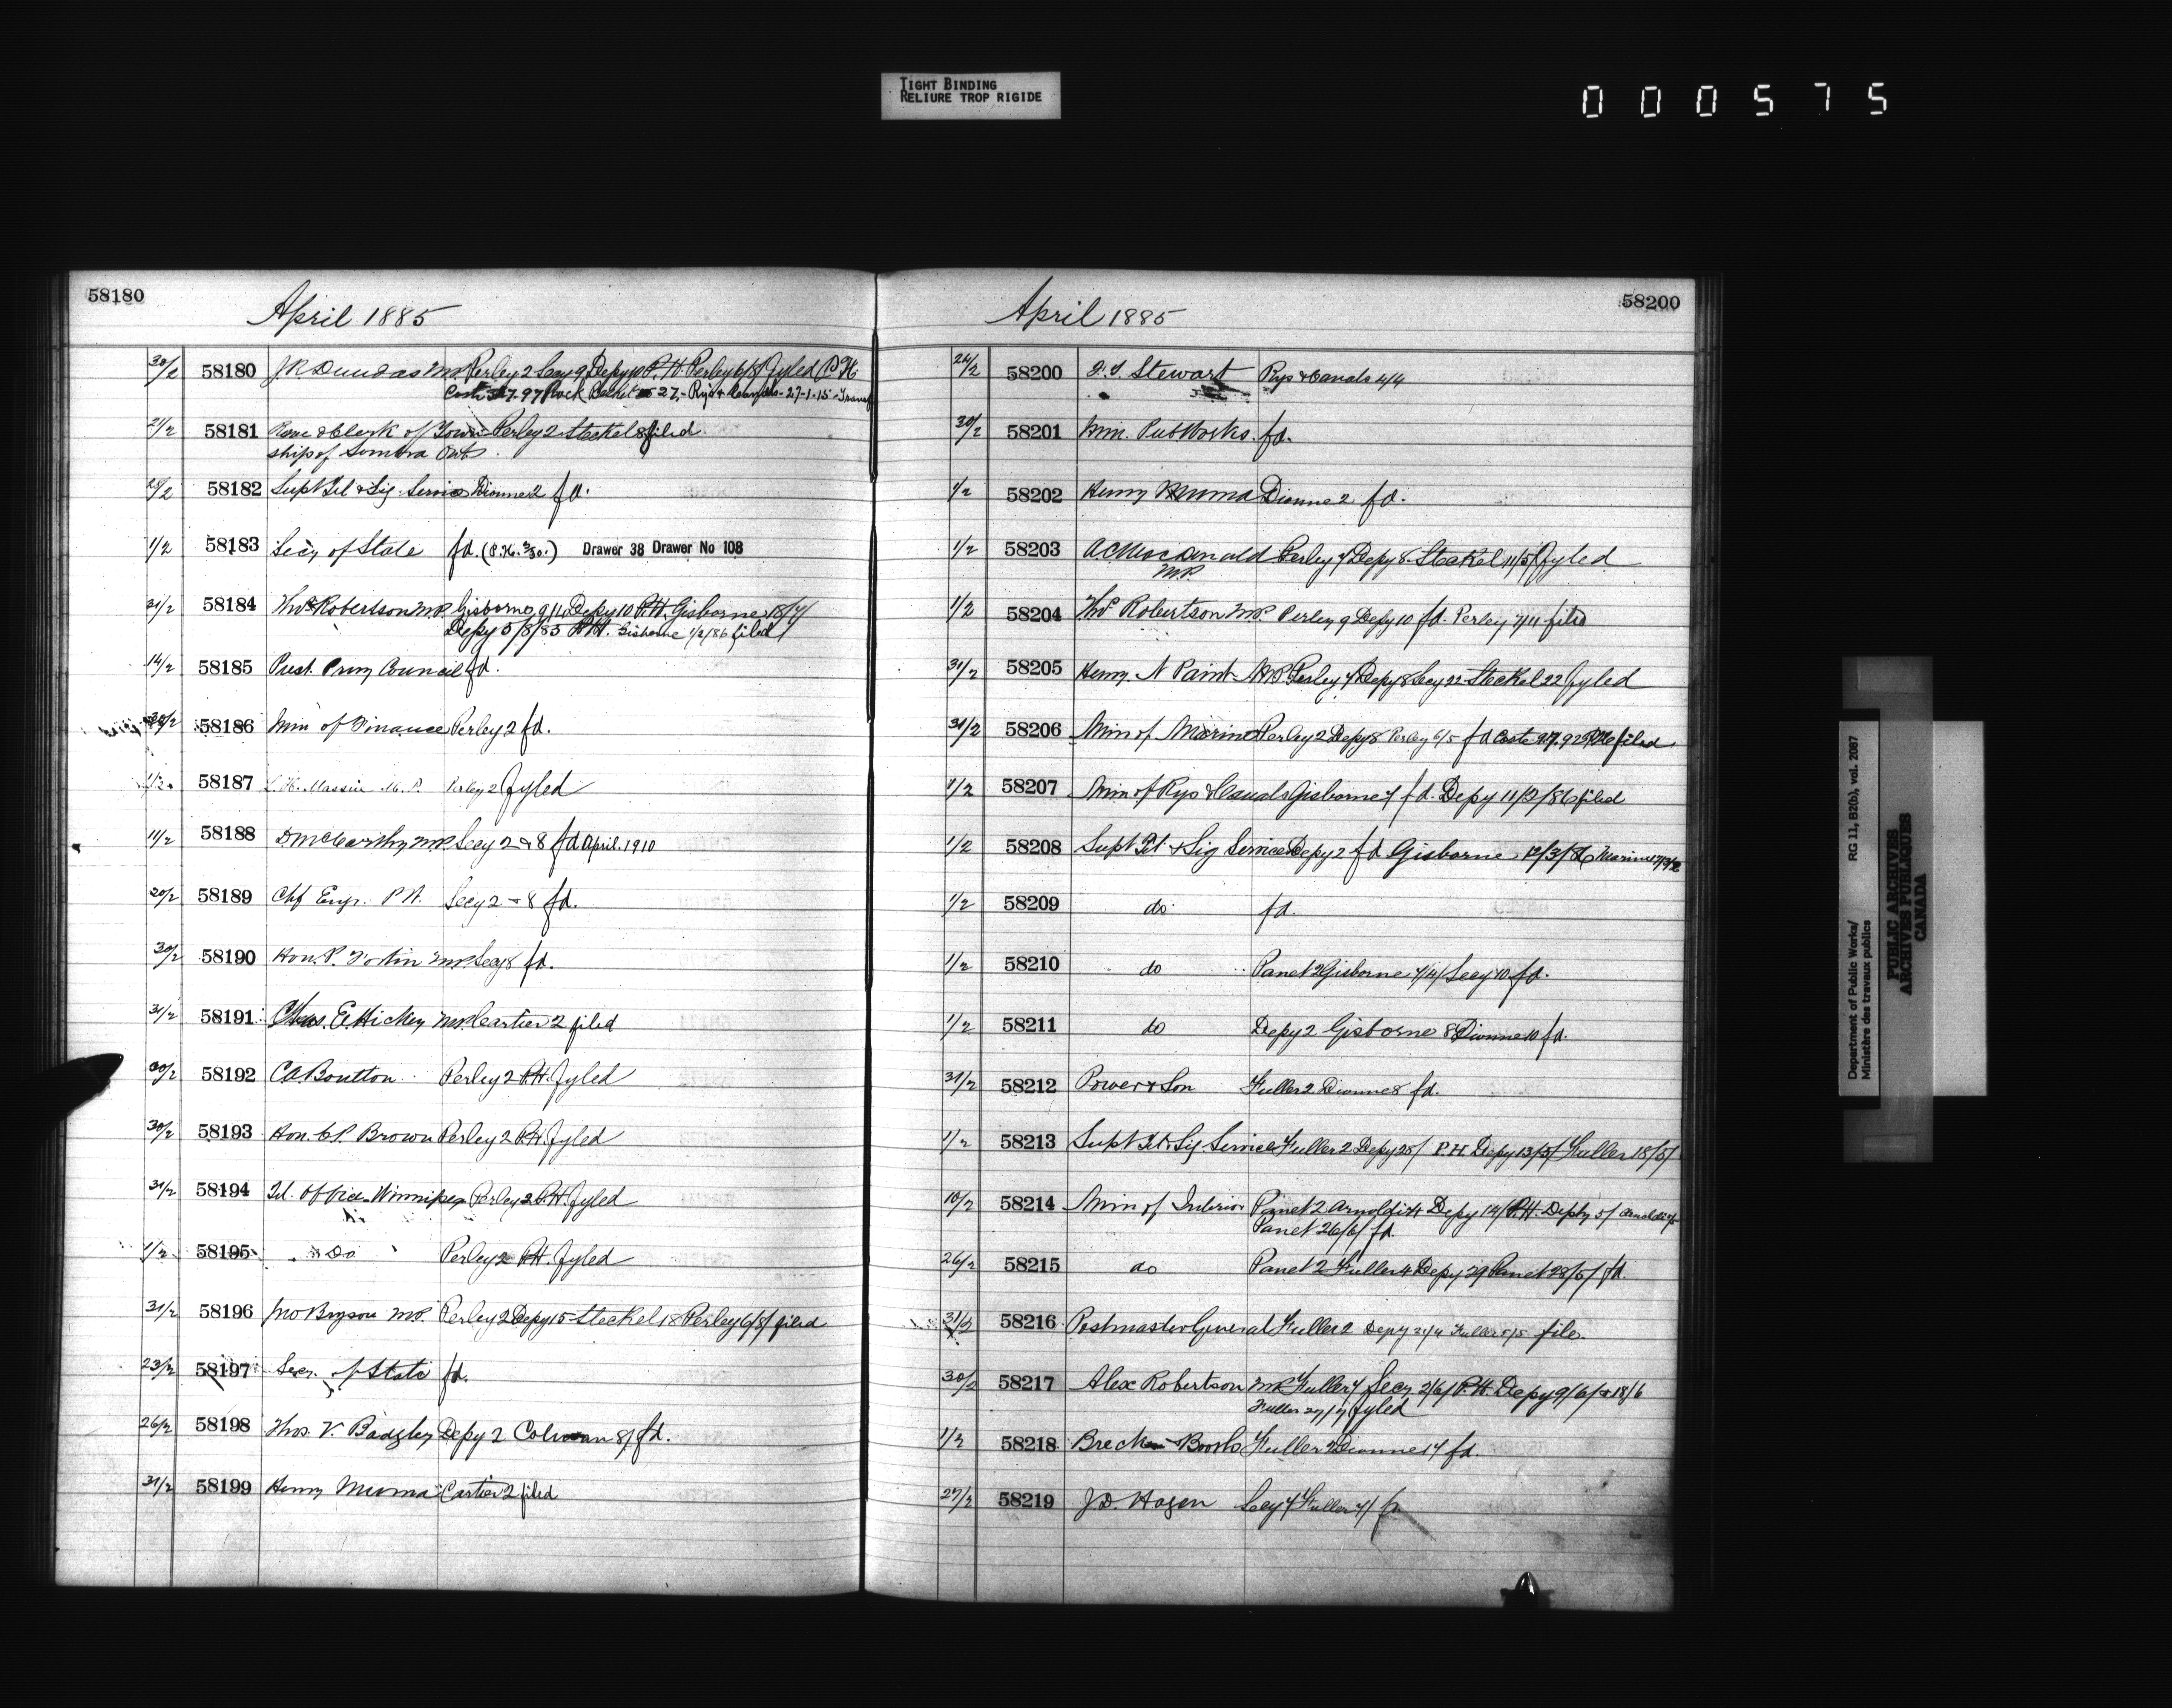 TIGHT BINDING
RELIURE TROP RIGIDE
000575
58180
April 1885
30/2 58180 J.R. Dundas MP Perley 2 Secy 9 Depy 10 P.H. Perley 6/8/ fyled P.H.
27.- Rys & Canals - 27-1-15 -
21/2 58181 Reeve & Clerk of Town- Perley 2 Steckel 8 filed
ship of Sombra Ont
58182 Supt Tel & Sig. Service Dionne 2 fd.
1/2 58183 Secy of State fd. Drawer 38 Drawer No 108
31/2 58184 Thos Robertson MP. Gisborne 9/4 Depy 10 P.H. Gisborne 18/7/
Depy 5/8/85 P.H. Gisborne 1/2/86 filed
14/2 58185 Prest. Privy Council fd.
30/2 58186 Min of Finance Perley 2 fd.
1/2 58187 Massue M.P. Perley 2 fyled
11/2 58188 D. McCarthy MP. Secy 2 & 8 fd April. 1910
20/2 58189 Chf Engr. P.W. Secy 2 - 8 fd.
30/2 58190 Hon. P. Fortin MP. Secy 8 fd.
31/2 58191 Chas. E Hickey MP. Cartier 2 filed
30/2 58192 CA Boulton Perley 2 P.H. fyled
30/2 58193 Hon. C.P. Brown Perley 2 P.H. fyled
31/2 58194 Tel. Office Winnipeg Perley 2 P.H. fyled
1/2 58195 Do Perley 2 P.H. fyled
31/2 58196 Jno Bryson MP. Perley 2 Depy 15 Steckel 18 Perley 6/8/ filed
23/2 58197 Secy. of State fd.
26/2 58198 Thos. V. Badgley Depy 2 Colman 8/ fd.
31/2 58199 Henry Muma Cartier 2 filed
58200
April 1885
24/2 58200 Stewart Rys & Canals 4/4
30/2 58201 Min. Pub Works. fd.
1/2 58202 Henry Muma Dionne 2 fd.
1/2 58203 A C Macdonald Perley 7 Depy 8 Steckel 11/5/ fyled
MP.
1/2 58204 Thos Robertson MP. Perley 9 Depy 10 fd. Perley 7/11 filed
31/2 58205 Henry N Paint MP Perley 7 Depy 8 Secy 22 Steckel 22 fyled
31/2 58206 Min of Marine Perley 2 Depy 8 Perley 6/5 fd Coste filed
1/2 58207 Min of Rys & Canals Gisborne 7 fd. Depy 11/2/86 filed
1/2 58208 Supt Tel & Sig Service Depy 2 fd Gisborne 12/3/86 Marine
1/2 58209 do fd.
1/2 58210 do Panet 2 Gisborne 7/4/ Secy 10 fd.
1/2 58211 do Depy 2 Gisborne 8 Dionne 10 fd.
31/2 58212 Power & Son Fuller 2 Dionne 8 fd.
1/2 58213 Supt Tel & Sig. Service Fuller 2 Depy 25/ P.H. Depy 13/5/ Fuller 18/5/
10/2 58214 Min of Interior Panet 2 Arnoldi 4 Depy 14/ P.H. Depty 5/ Arnoldi
Panet 26/6/ fd.
26/2 58215 do Panet 2 Fuller 4 Depy 29 Panet 28/5/ fd.
31/2 58216 Postmaster General Fuller 2 Depy 21/4 Fuller 5/5 file.
30/2 58217 Alex Robertson MP Fuller 7 Secy 2/6/ P.H. Depy 9/6/ & 18/6
Fuller 27/7/ fyled
1/2 58218 Fuller 2 Dionne 14 fd.
27/2 58219 J.D. Hazen Secy 7 Fuller 7/
Department of Public Works/ RG 11, B2(b), vol. 2087
Ministère des travaux publics
PUBLIC ARCHIVES
ARCHIVES PUBLIQUES
CANADA